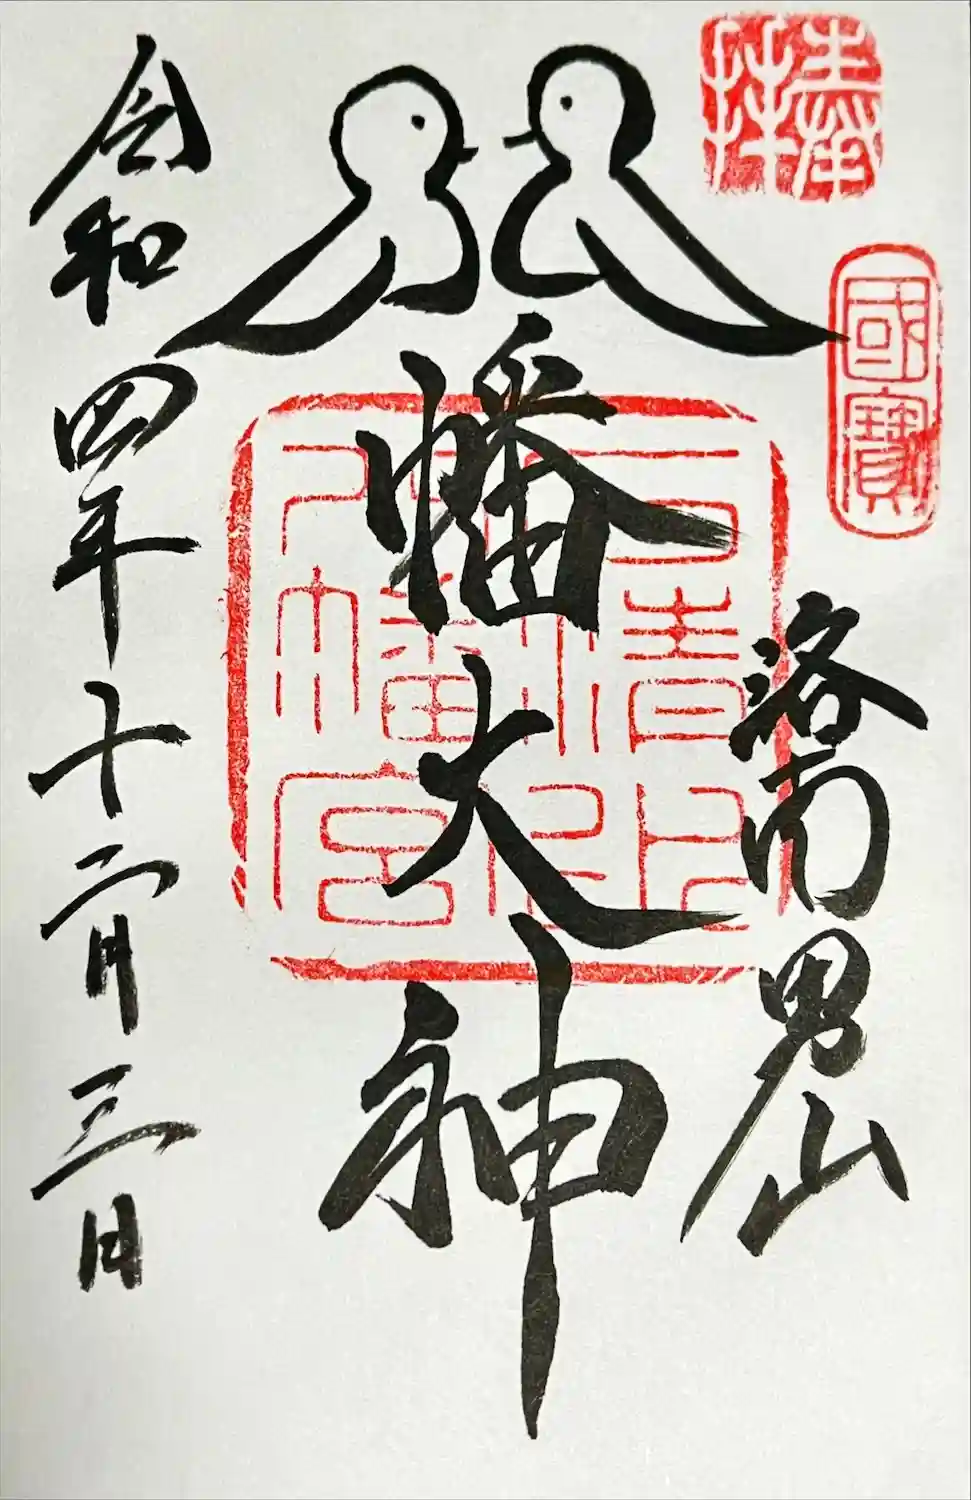 奉拜
國寶
洛南男山
八幡大神
石清水
八幡宮
令和四年十二月三日